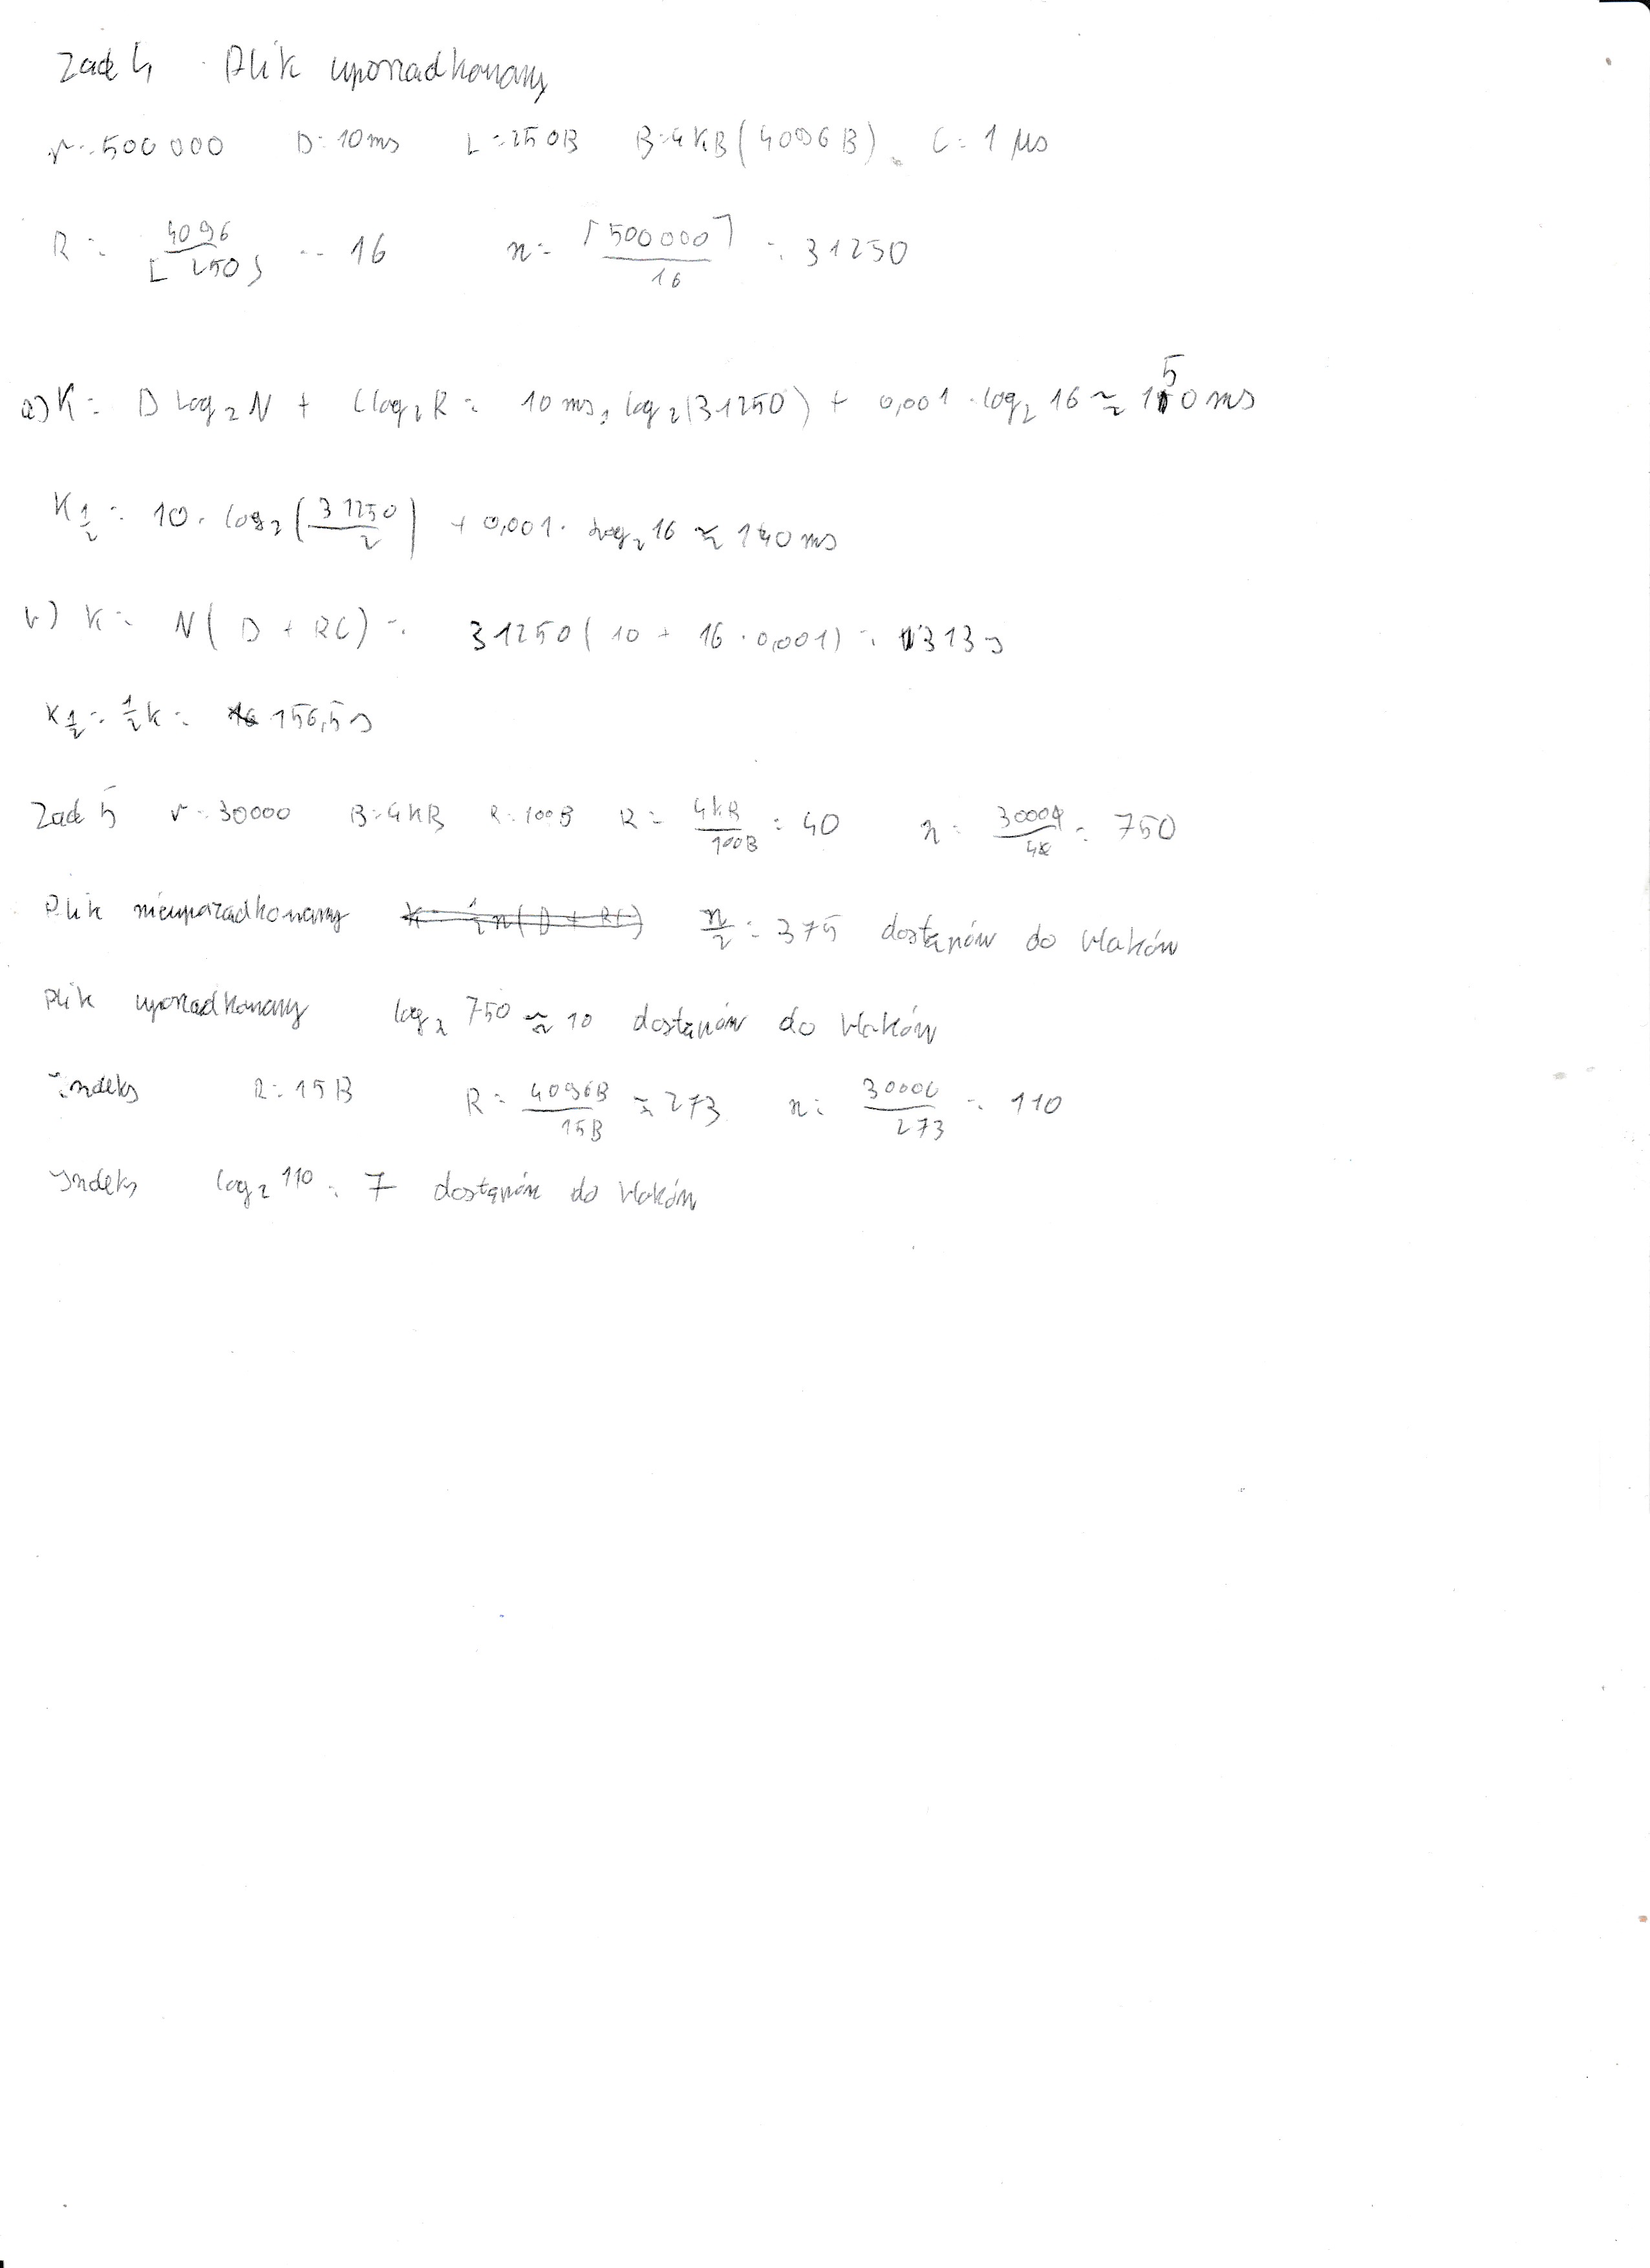 Zad 4 Plik uporządkowany
r = 500 000 D = 10ms L = 250B B = 4KB (4096B) C = 1 μs
R = ⌊4096/250⌋ = 16 n = ⌈500000⌉/16 = 31250
a) K = D log₂N + C log₂R = 10ms · log₂(31250) + 0,001 · log₂16 ≈ 150 ms
K½ = 10 · log₂(31250/2) + 0,001 · log₂16 ≈ 140 ms
b) K = N(D + RC) = 31250(10 + 16 · 0,001) = 313s
K½ = ½K = 156,5s
Zad 5 r = 30000 B = 4KB R = 100B R = 4KB/100B = 40 n = 30000/40 = 750
Plik nieuporządkowany n/2 = 375 dostępów do bloków
Plik uporządkowany log₂ 750 ≈ 10 dostępów do bloków
indeks R = 15B R = 4096B/15B ≈ 273 n = 30000/273 = 110
Indeks log₂ 110 = 7 dostępów do bloków